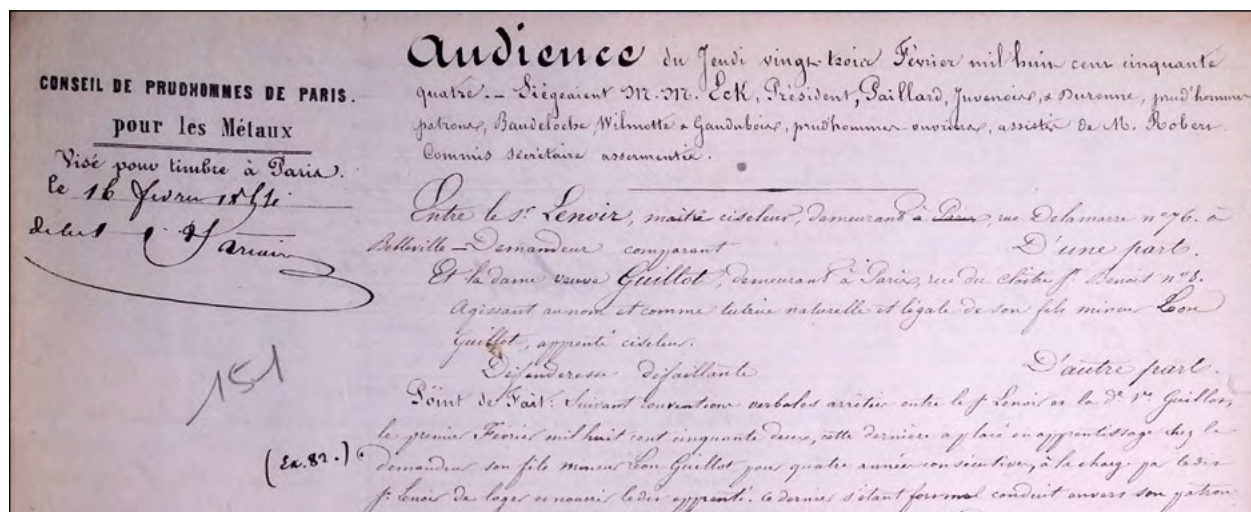 CONSEIL DE PRUDHOMMES DE PARIS.
pour les Métaux
Visé pour timbre à Paris.
le 16
151
(Ex. 82.)
Audience du Jeudi vingt-trois Février mil huit cent cinquante
quatre. — Siégeaient M.M. Eck, Président, Paillard, Juvenois, & Duronne, prud'hommes
patrons, Baudeloche, Wilmotte & Gaudubois, prudhommes ouvriers, assistés de M. Robert
Commis secrétaire assermentés.
Entre le Sr. Lenoir, maître ciseleur, demeurant à Paris, rue Delamarre no. 76. à
Belleville — Demandeur comparant D'une part.
Et la dame veuve Guillot, demeurant à Paris, rue du Cloître St. Benoit no. 8.
Agissant au nom et comme tutrice naturelle et légale de son fils mineur Léon
Guillot, apprenti ciseleur.
Défenderesse défaillante D'autre part.
Point de Fait: Suivant conventions verbales arrêtées entre le Sr. Lenoir et la de. Ve. Guillot,
le premier Février mil huit cent cinquante deux, cette dernière a placé en apprentissage chez le
demandeur son fils mineur Léon Guillot pour quatre années consécutives, à la charge par ledit
Sr. Lenoir de loger et nourir ledit apprenti. Ce dernier s'étant fort mal conduit envers son patron